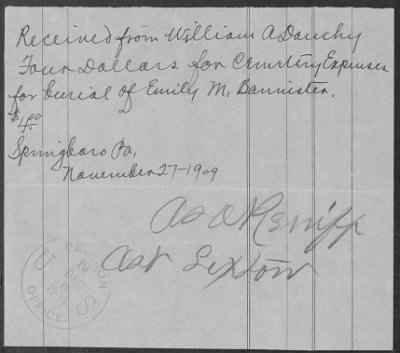 Received from William A Dauchy
Four Dollars for Cemetery Expenses
for burial of Emily M. Bannister.
$4.00
Springboro Pa,
November 27-1909
Asa O Reniff
Ast Sexton
PENSION
U S
OFFICE